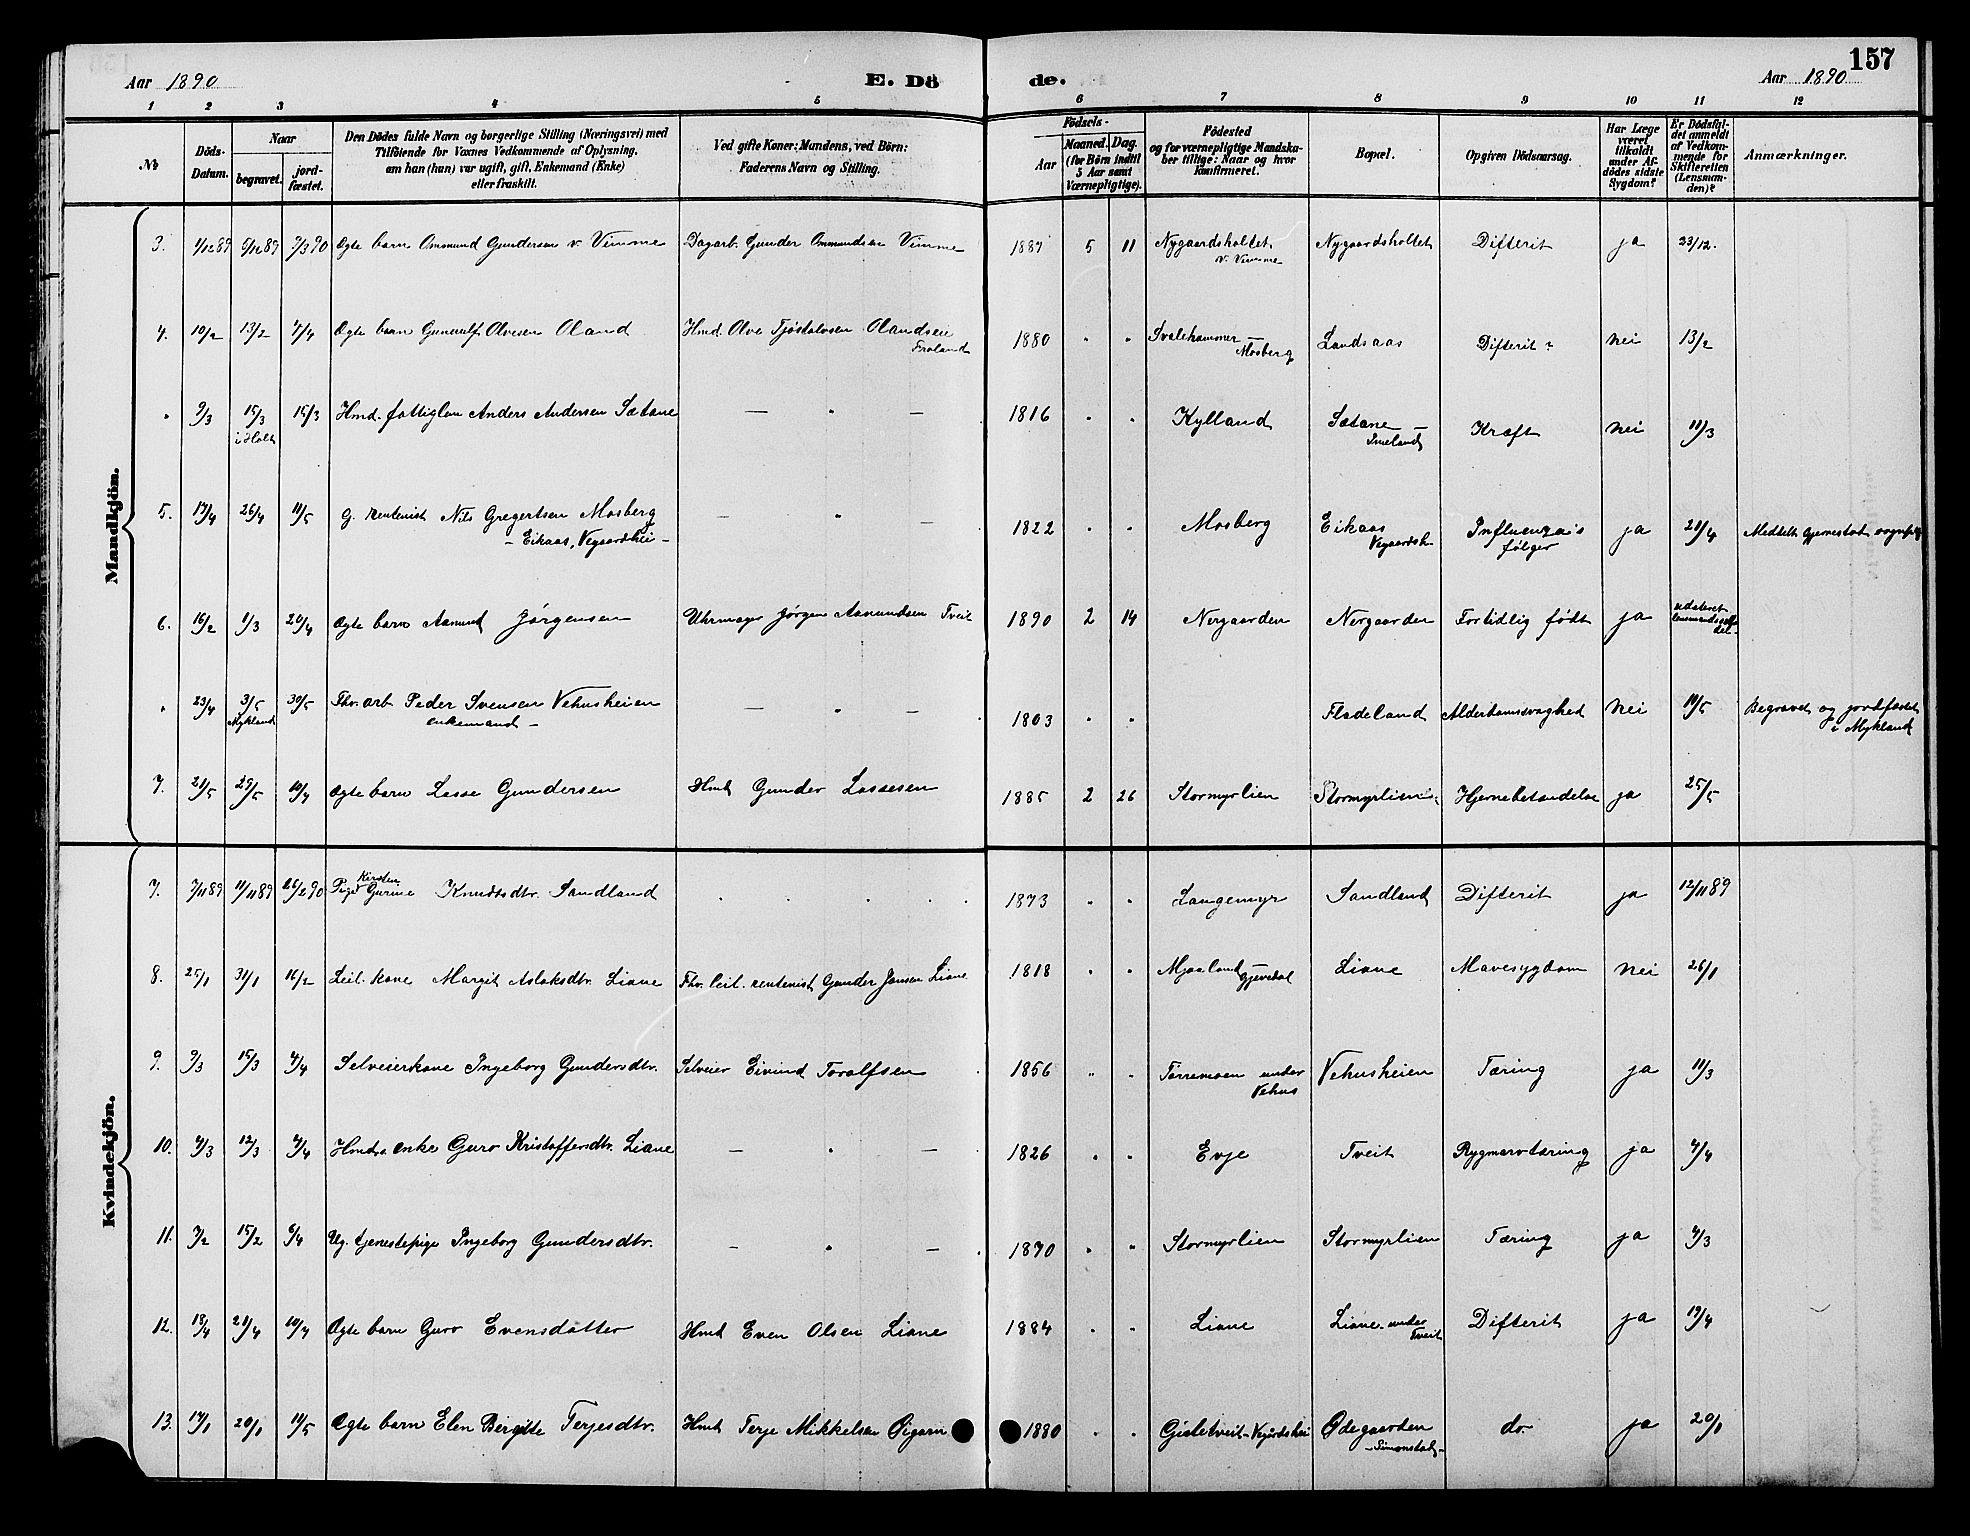 157
Aar 1890
E. Dö
de.
Aar 1890
1 2 3 4 5 6 7 8 9 10 11 12
No
Döds-Datum.
Naar
begravet.
jord-fæstet.
Den Dödes fulde Navn og borgerlige Stilling (Næringsvei) med
Tilföiende for Voxnes Vedkommende af Oplysning,
om han (hun) var ugift, gift, Enkemand (Enke)
eller fraskilt.
Ved gifte Koner: Mandens, ved Börn:
Faderens Navn og Stilling.
Födsels-
Aar
Maaned. Dag.
(for Börn indtil
5 Aar samt
Værnepligtige).
Födested
og for værnepligtige Mandska-
ber tillige: Naar og hvor
konfirmeret.
Bopæl.
Opgiven Dödsaarsag.
Har Læge
været
tilkaldt
under Af-
dödes sidste
Sygdom?
Er Dödsfal-
det anmeldt
af Vedkom-
mende for
Skifteretten
(Lensman-
den)?
Anmærkninger.
Mandkjön.
3. 1/12 89 5/12 89 7/3 90 Ægte barn Ommund Gundersen v. Vimme Dagarb. Gunder Ommundsen Vimme 1887 5 11 Nygaardsholtet Nygaardsholtet Difterit ja 23/12.
v. Vimme
4. 10/2 13/2 7/4 Ægte barn Gunnulf Olvesen Oland Hmd. Olve Tjøstolvsen Olandseie 1880 " " Svalehammer — Landsaas Difterit? nei 13/2
Froland Mosberg
" 9/3 15/3 15/3 Hmd. fattiglem Anders Andersen Sætane — " — 1816 " " Kylland Sætane — Kræft nei 11/3
i Holt Imeland
5. 17/4 26/4 11/5 G. rentenist Nils Gregertsen Mosberg — " — 1822 " " Mosberg Eikaas Influenza's ja 21/4 Meddelt Gjerrestad
– Eikaas, Vegaardshei – Vegaardsh. følger
6. 16/2 1/3 20/4 Ægte barn Aamund Jørgensen Uhrmager Jørgen Aamundsen Tveit 1890 2 14 Nergaarden Nergaarden Fortidlig født ja udateret
" 23/4 3/5 30/5 Fhv. arb Peder Svensen Vehusheien — " — 1803 " " Fladeland Alderdomssvaghed nei 10/5 Begravet og jordfæstet
Mykland enkemand – i Mykland
7. 21/5 29/5 10/7 Ægte barn Lasse Gundersen Hmd Gunder Lassesen 1885 2 26 Stormyrlien Stormyrlien Hjernebetændelse ja 25/5
Kvindekjön.
7. 7/11 89 11/11 89 26/2 90 Pige Kirsten Gurine Knudtsdtr. Sandland 1873 " " Langemyr Sandland Difterit ja 12/11 89
8. 25/1 31/1 16/2 Leil. kone Margit Aslaksdtr. Liane Fhv. leil. rentenist Gunder Jensen Liane 1818 " " Mjaaland Liane Mavesygdom nei 26/1
Gjøvedal
9. 9/3 15/3 4/4 Selveierkone Ingeborg Gundersdtr. Selveier Eivind Toralfsen 1856 " " Tørremoen under Vehusheien Tæring ja 11/3
Vehus
10. 4/3 12/3 4/4 Hmds enke Guro Kristoffersdtr. Liane — " — 1826 " " Evje Tveit Rygmarvtæring ja 4/4
11. 7/2 15/2 6/4 Ug. tjenestepige Ingeborg Gundersdtr. — " — 1870 " " Stormyrlien Stormyrlien Tæring ja 4/3
12. 18/4 21/4 10/7 Ægte barn Guro Evensdatter Hmd Even Olsen Liane 1884 " " Liane Liane under Difterit ja 19/4
Tveit
13. 17/1 20/1 11/5 Ægte barn Elen Birgitte Terjesdtr. Hmd Terje Mikkelsen Øigarn 1880 " " Gisletveit – Vegårdshei Ødegaarden do. ja 20/1
– Simonstad –